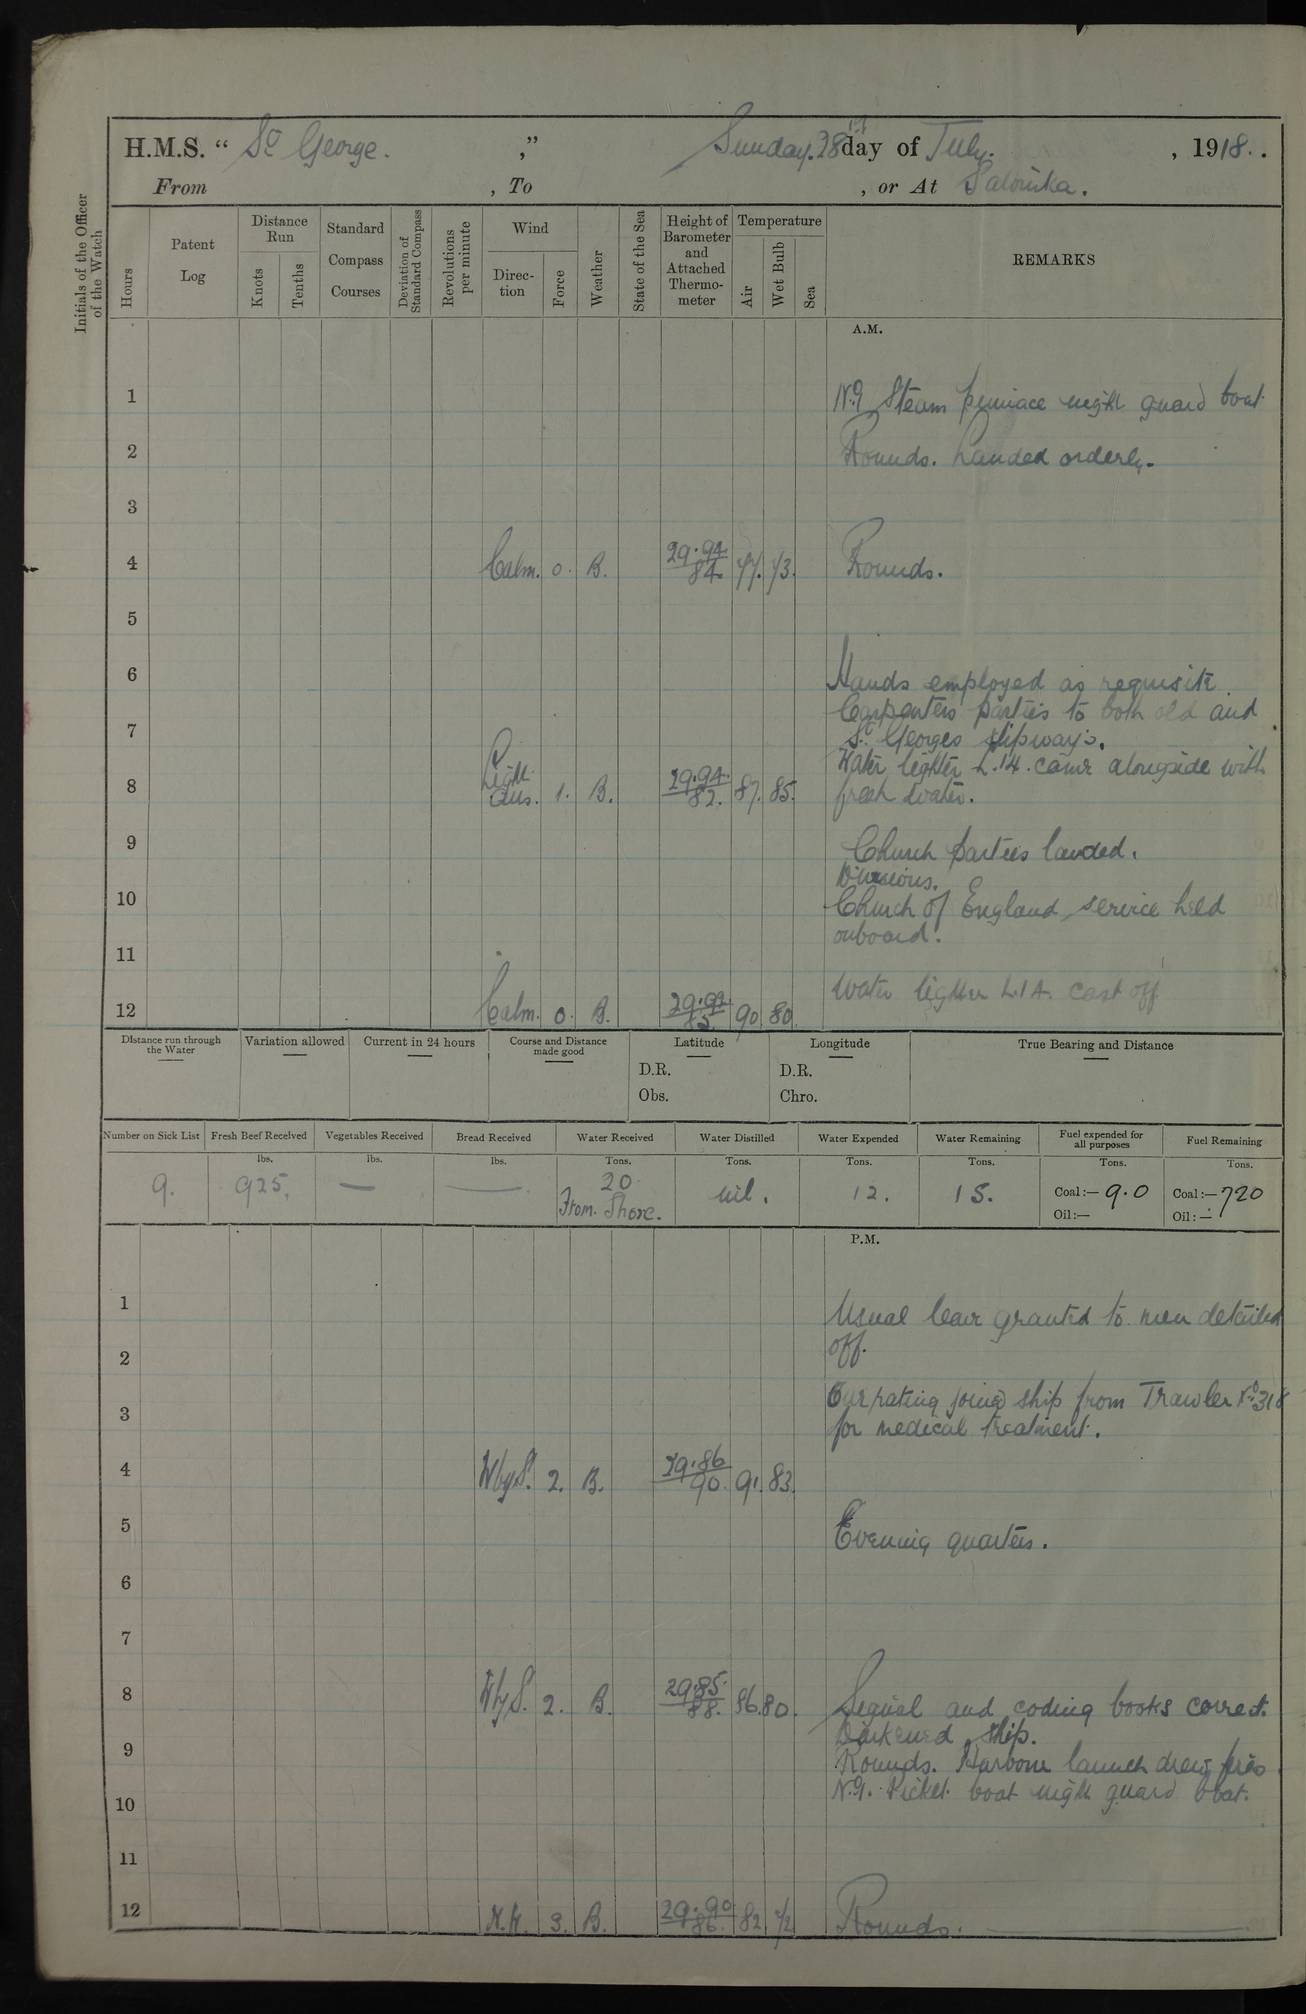 H.M.S. “ St George. ,” Sunday. 28th day of July. , 1918. .
From , To , or At Salonika.
Initials of the Officer of the Watch
Hours
Patent Log
Distance Run
Knots
Tenths
Standard Compass Courses
Deviation of Standard Compass
Revolutions per minute
Wind
Direc-tion
Force
Weather
State of the Sea
Height of Barometer and Attached Thermo-meter
Temperature
Air
Wet Bulb
Sea
REMARKS
A.M.
1 No 1 Steam pinnace night guard boat
2 Rounds. Landed orderly.
3
4 Calm. 0. B. 29.94 84. 77. 73. Rounds.
5
6 Hands employed as requisite
Carpenters parties to both old and
7 St. Georges slipways.
Water lighter L.14. came alongside with
8 Light Airs. 1. B. 29.94. 82. 87. 85. fresh water.
9 Church parties landed.
Divisions.
10 Church of England service held
onboard.
11
Water lighter L.14. cast off
12 Calm. 0. B. 29.92. 85. 90 80
Distance run through the Water
Variation allowed
Current in 24 hours
Course and Distance made good
Latitude
D.R.
Obs.
Longitude
D.R.
Chro.
True Bearing and Distance
Number on Sick List Fresh Beef Received Vegetables Received Bread Received Water Received Water Distilled Water Expended Water Remaining Fuel expended for all purposes Fuel Remaining
lbs. lbs. lbs. Tons. Tons. Tons. Tons. Tons. Tons.
9. 925. — — 20 From. Shore. nil. 12. 15. Coal:— 9.0 Coal:— 720
Oil:— Oil:—
P.M.
1 Usual leave granted to men detailed
2 off.
Our rating joined ship from Trawler No 318
3 for medical treatment.
4 W by S. 2. B. 29.86 90. 91. 83.
5 Evening quarters.
6
7
8 W by S. 2. B. 29.85. 88. 86. 80. Signal and coding books correct.
Darkened ship.
9 Rounds. Harbour launch drew fires.
10 No 1. Picket boat night guard boat.
11
12 3. B. 29.90 86. 82 72 Rounds.